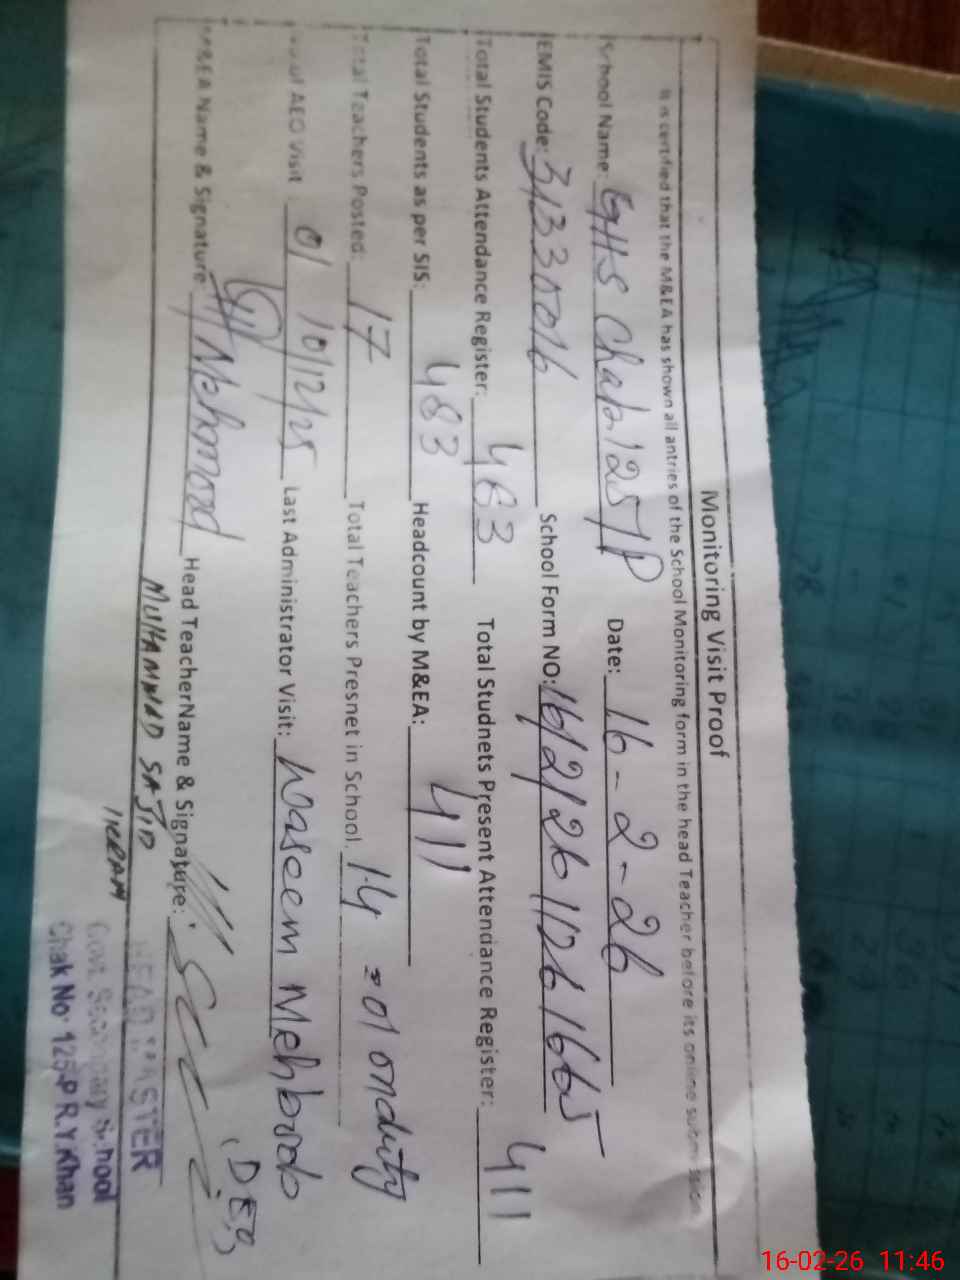 Monitoring Visit Proof
It is certified that the M&EA has shown all antries of the School Monitoring form in the head Teacher before its online submission
School Name: GHS Chak 125/P Date: 16-2-26
EMIS Code: 31330016 School Form NO: 16/2/26 1126 1665
Total Students Attendance Register: 463 Total Studnets Present Attendance Register: 411
Total Students as per SIS: 483 Headcount by M&EA: 411
Total Teachers Posted: 17 Total Teachers Presnet in School. 14 = 01 onduty
of AEO Visit 01 10/12/25 Last Administrator Visit: Waseem Mehboob (DEO)
M&EA Name & Signature: Mehmood Head TeacherName & Signature:
MUHAMMAD SAJID
IKRAM
HEAD MASTER
Govt. Secondary School
Chak No. 125-P R.Y.Khan
16-02-26 11:46